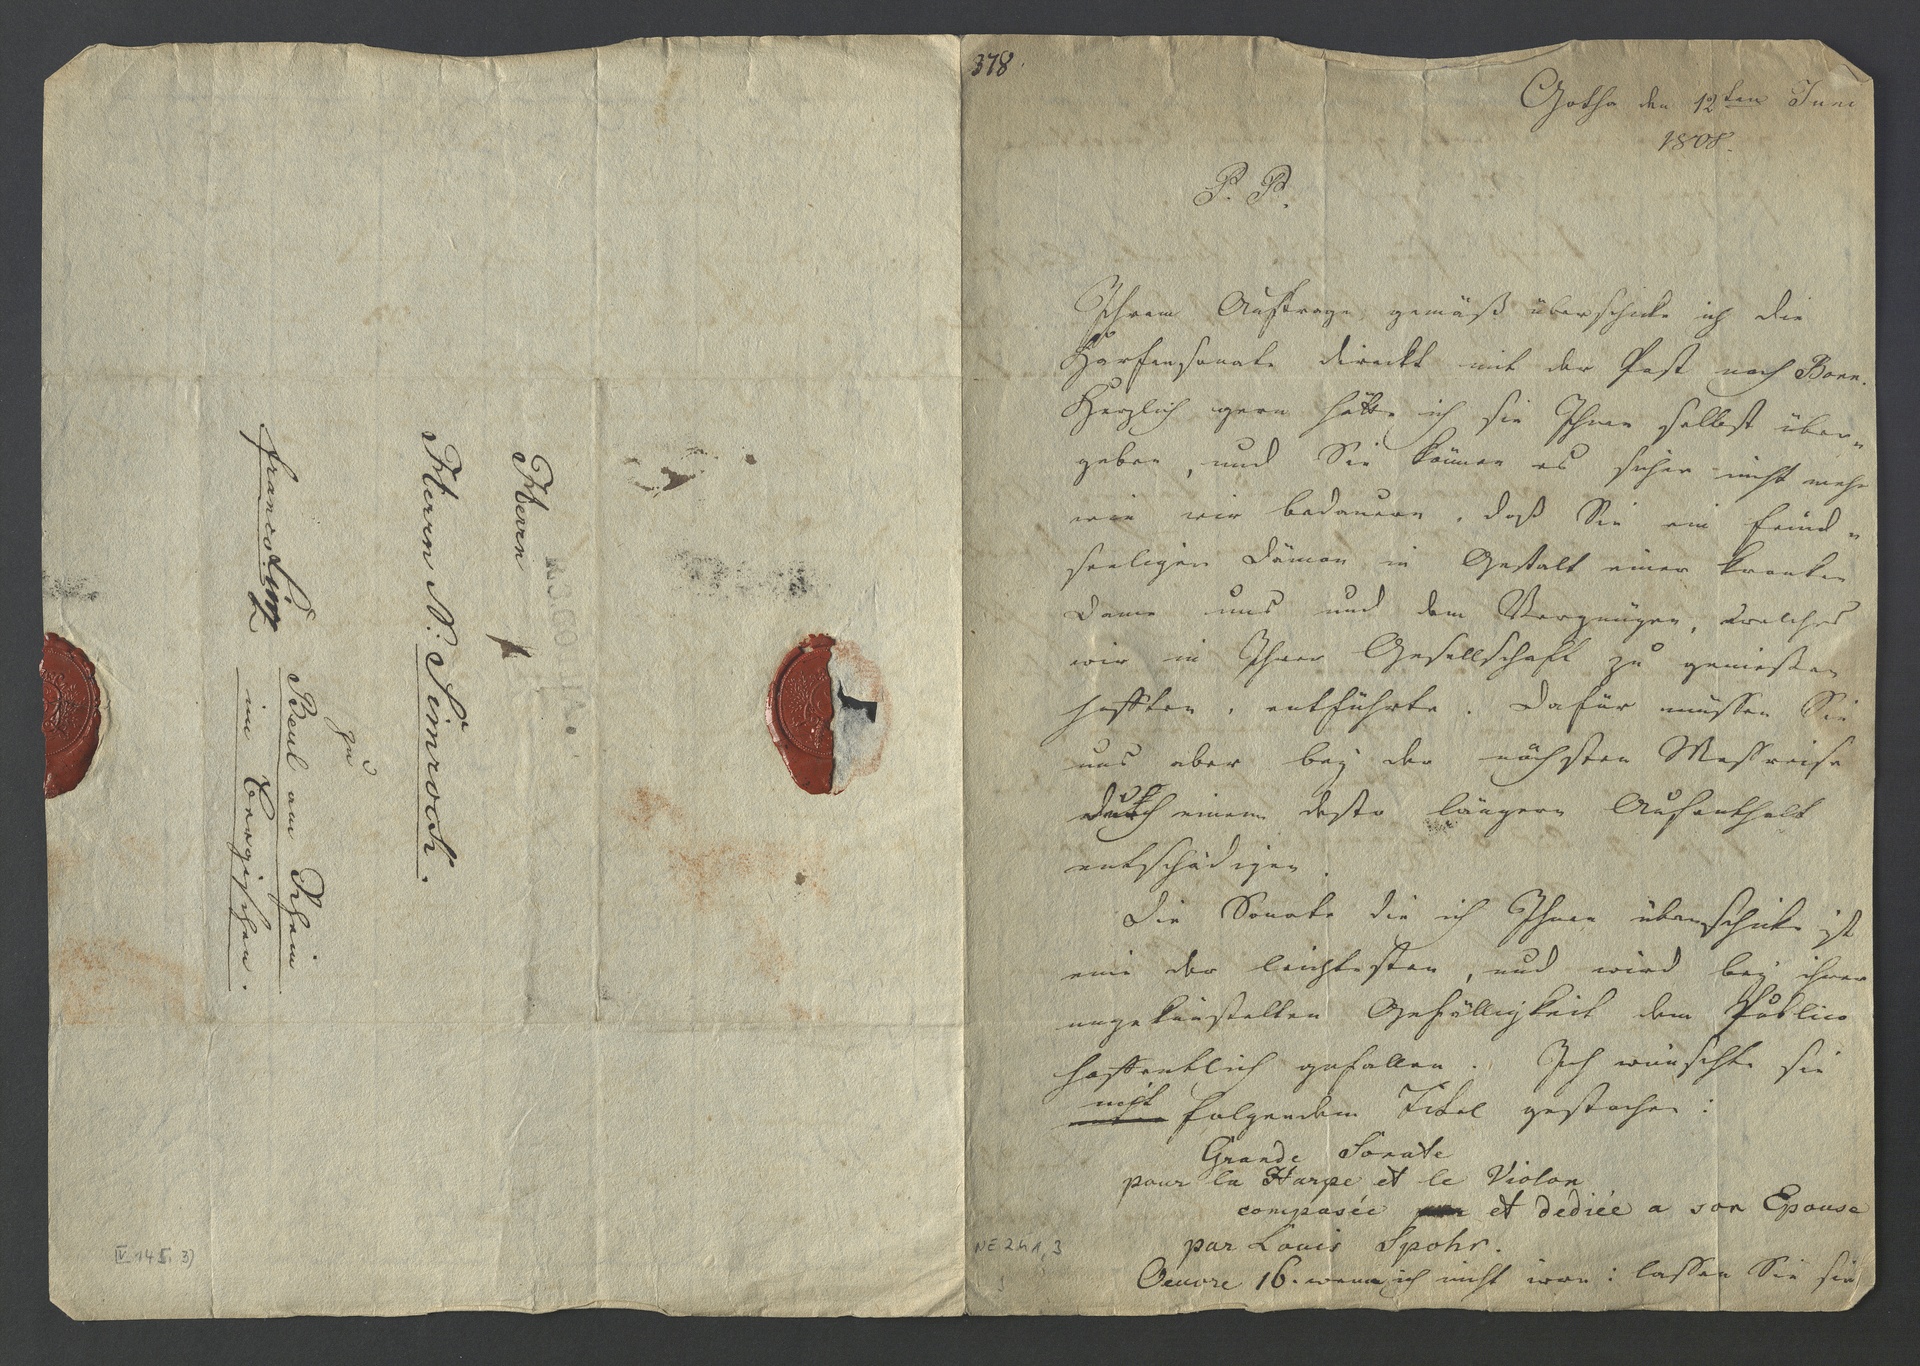 Herrn
Herrn N: Simrock.
zu
Beul am Rhein
im Bergischen.
franco Linz
IV. 145. 3)
378.
Gotha den 12ten Juni
1808.
P. P.
Ihrem Auftrage gemäß überschicke ich die
Harfensonate direckt mit der Post nach Bonn.
Herzlich gern hätte ich sie Ihnen selbst über-
geben, und Sie können es sicher nicht mehr
wie wir bedauern, daß Sie ein feind-
seeliger Dämon in Gestalt einer kranken
Dame uns und dem Vergnügen, welches
wir in Ihrer Gesellschaft zu genießen
hofften, entführte. Dafür müssen Sie
uns aber bey der nächsten Meßreise
durch einem desto längern Aufenthalt
entschädigen.
Die Sonate die ich Ihnen überschicke ist
eine der leichtesten, und wird bey ihrer
ungekünstelten Gefälligkeit dem Publico
hoffentlich gefallen. Ich wünschte sie
mit folgendem Titel gestochen:
Grande Sonate
pour la Harpe et le Violon
composée et dediée a son Epouse
par Louis Spohr.
Oeuvre 16. wenn ich nicht irre: lassen Sie sie
NE 241, 3